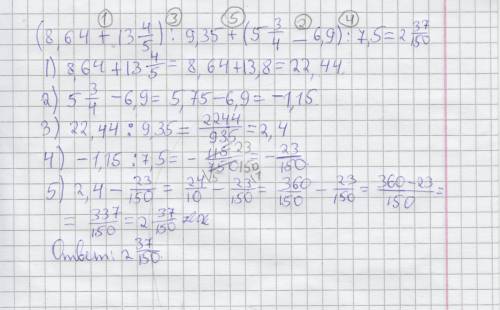 ① ③ ⑤ ② ④
(8,64 + 13 4/5) : 9,35 + (5 3/4 - 6,9) : 7,5 = 2 37/150
1) 8,64 + 13 4/5 = 8,64 + 13,8 = 22,44.
2) 5 3/4 - 6,9 = 5,75 - 6,9 = -1,15
3) 22,44 : 9,35 = 2244/935 = 2,4
4) -1,15 : 7,5 = - 115 23/750 150 = - 23/150.
5) 2,4 - 23/150 = 24/10 - 23/150 = 360/150 - 23/150 = 360-23/150 =
= 337/150 = 2 37/150
Ответ: 2 37/150.